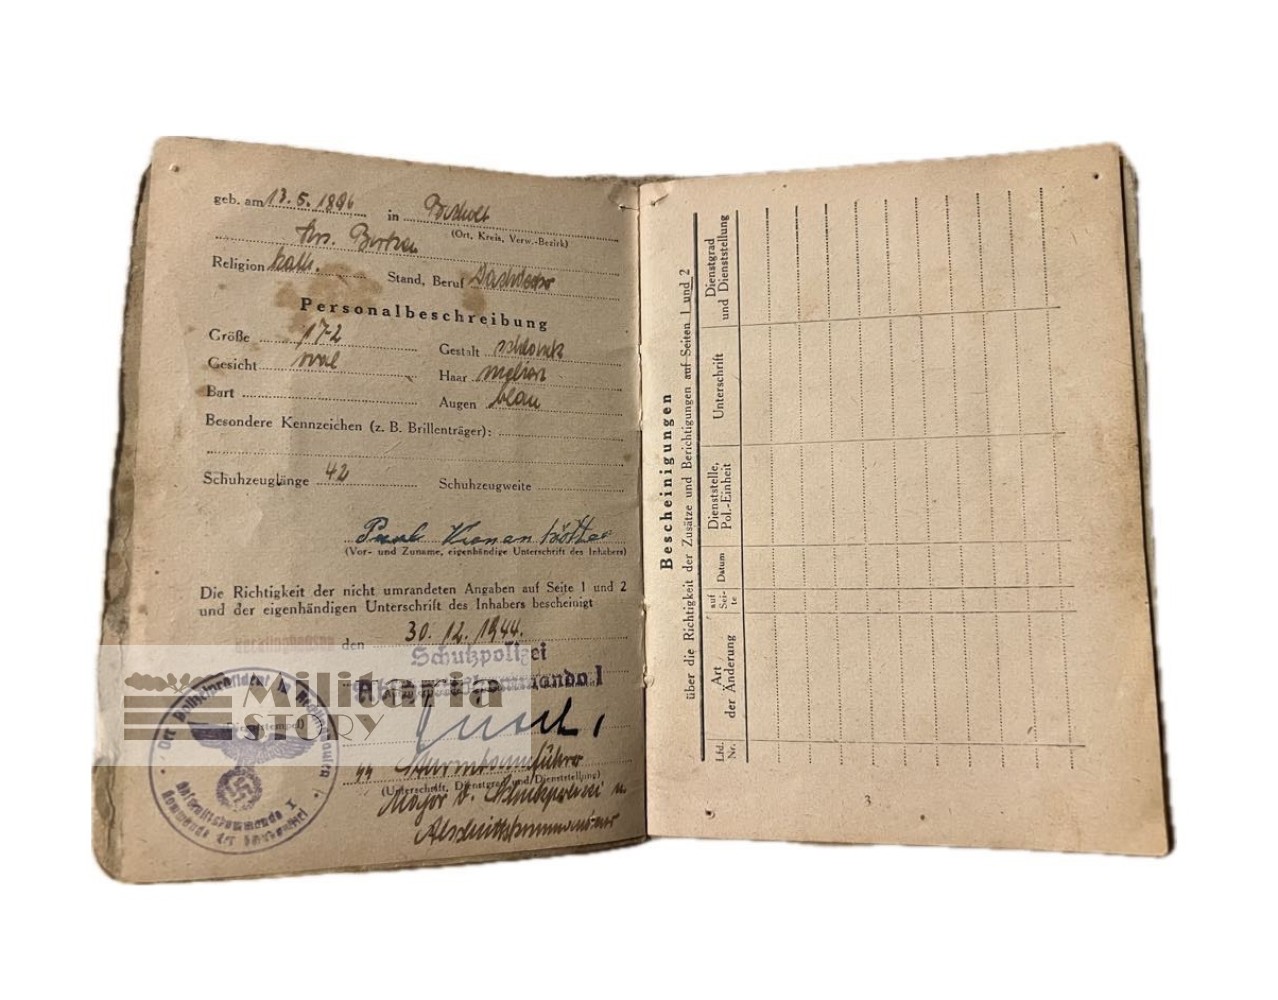 geb. am 13. 5. 1896 in Bocholt
(Ort, Kreis, Verw.-Bezirk)
Krs. Borken
Religion kath. Stand, Beruf Dachdecker
Personalbeschreibung
Größe 172 Gestalt schlank
Gesicht oval Haar meliert
Bart Augen blau
Besondere Kennzeichen (z. B. Brillenträger):
Schuhzeuglänge 42 Schuhzeugweite
Paul
(Vor- und Zuname, eigenhändige Unterschrift des Inhabers)
Die Richtigkeit der nicht umrandeten Angaben auf Seite 1 und 2
und der eigenhändigen Unterschrift des Inhabers bescheinigt
Recklinghausen den 30. 12. 1944.
Schutzpolizei
Abschnittskommando I
Militaria
STORY
(Dienststempel)
Der Polizeipräsident in Recklinghausen
Abschnittskommando I
Kommando der Schutzpolizei
SS Sturmbannführer
(Unterschrift, Dienstgrad und Dienststellung)
Major d. Schutzpolizei u.
Abschnittskommandeur
Bescheinigungen
über die Richtigkeit der Zusätze und Berichtigungen auf Seiten 1 und 2
Lfd. Nr.
Art der Änderung
auf Sei- te
Datum
Dienststelle, Pol.-Einheit
Unterschrift
Dienstgrad und Dienststellung
3